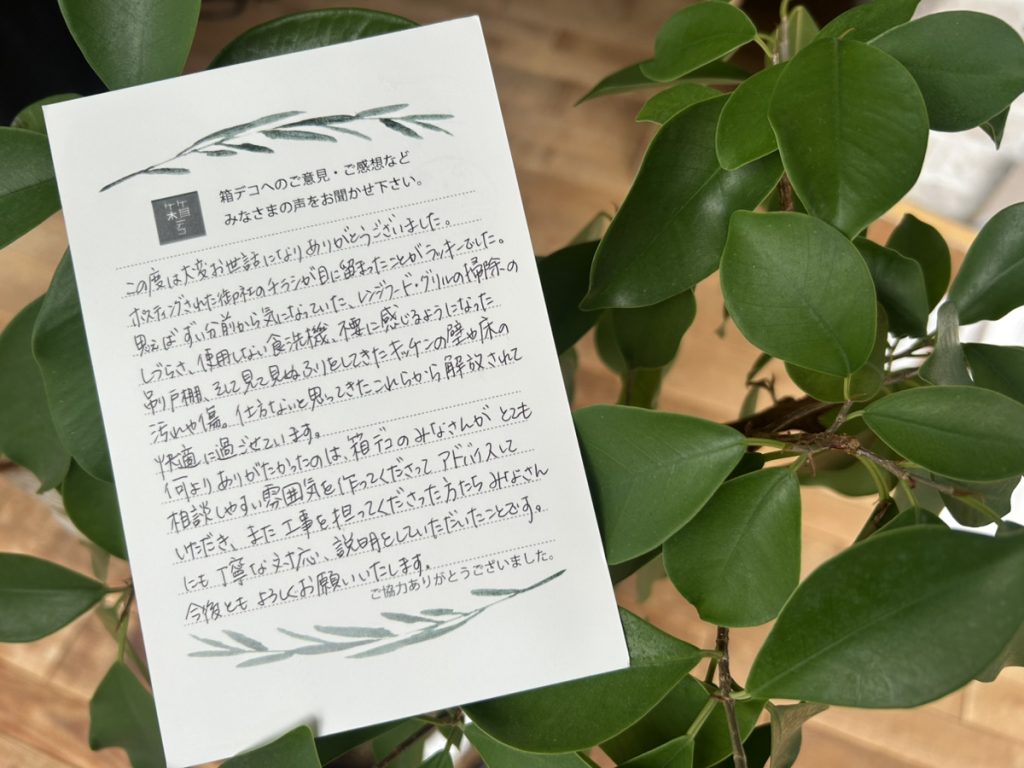 箱デコへのご意見・ご感想など
みなさまの声をお聞かせ下さい。
この度は大変お世話になりありがとうございました。
ポスティングされた御社のチラシが目に留まったことがラッキーでした。
思えばずい分前から気になっていた、レンジフード・グリルの掃除の
しづらさ、使用しない食洗機、不要に感じるようになった
吊り戸棚、そして見て見ぬふりをしてきたキッチンの壁や床の
汚れや傷。仕方ないと思ってきたこれらから解放されて
快適に過ごせています。
何よりありがたかったのは、箱デコのみなさんがとても
相談しやすい雰囲気を作ってくださってアドバイスして
いただき、また工事を担ってくださった方たちみなさん
にも丁寧な対応、説明をしていただいたことです。
今後ともよろしくお願いいたします。
ご協力ありがとうございました。